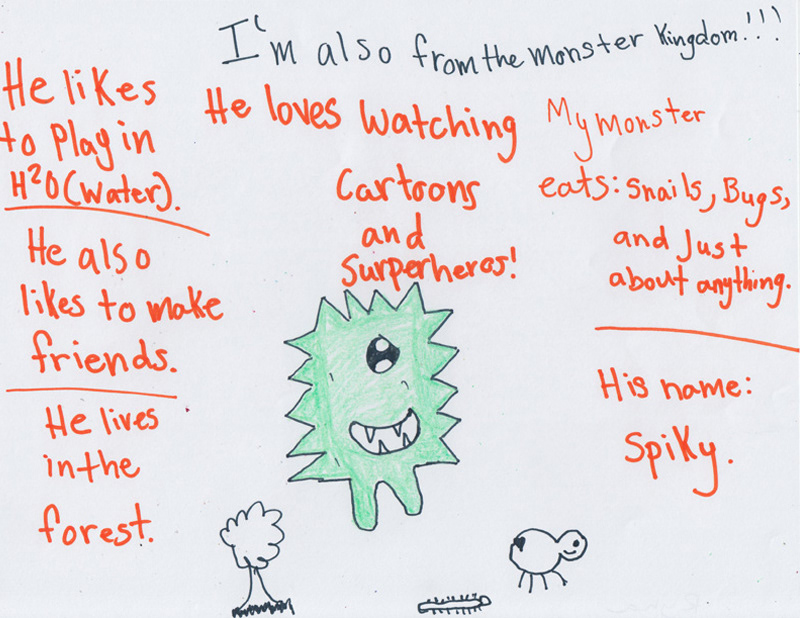 I'm also from the monster Kingdom!!!
He likes
to play in
H²O (water).
He also
likes to make
friends.
He lives
in the
forest.
He loves watching
Cartoons
and
Surperheros!
My monster
eats: Snails, Bugs,
and Just
about anything.
His name:
Spiky.